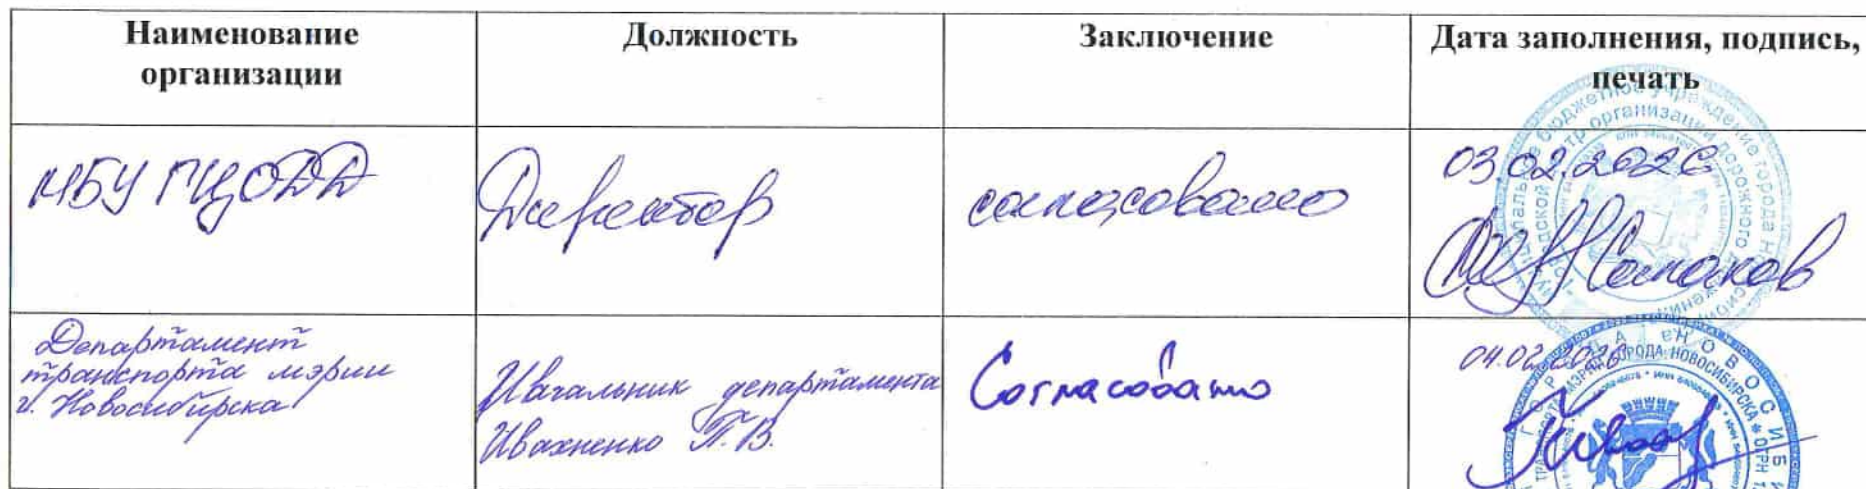 Наименование организации
Должность
Заключение
Дата заполнения, подпись, печать
МБУ ГЦОДД
Директор
согласовано
03.02.2026
Департамент
транспорта мэрии
г. Новосибирска
Начальник департамента
Ивахненко П.В.
Согласовано
04.02.2026